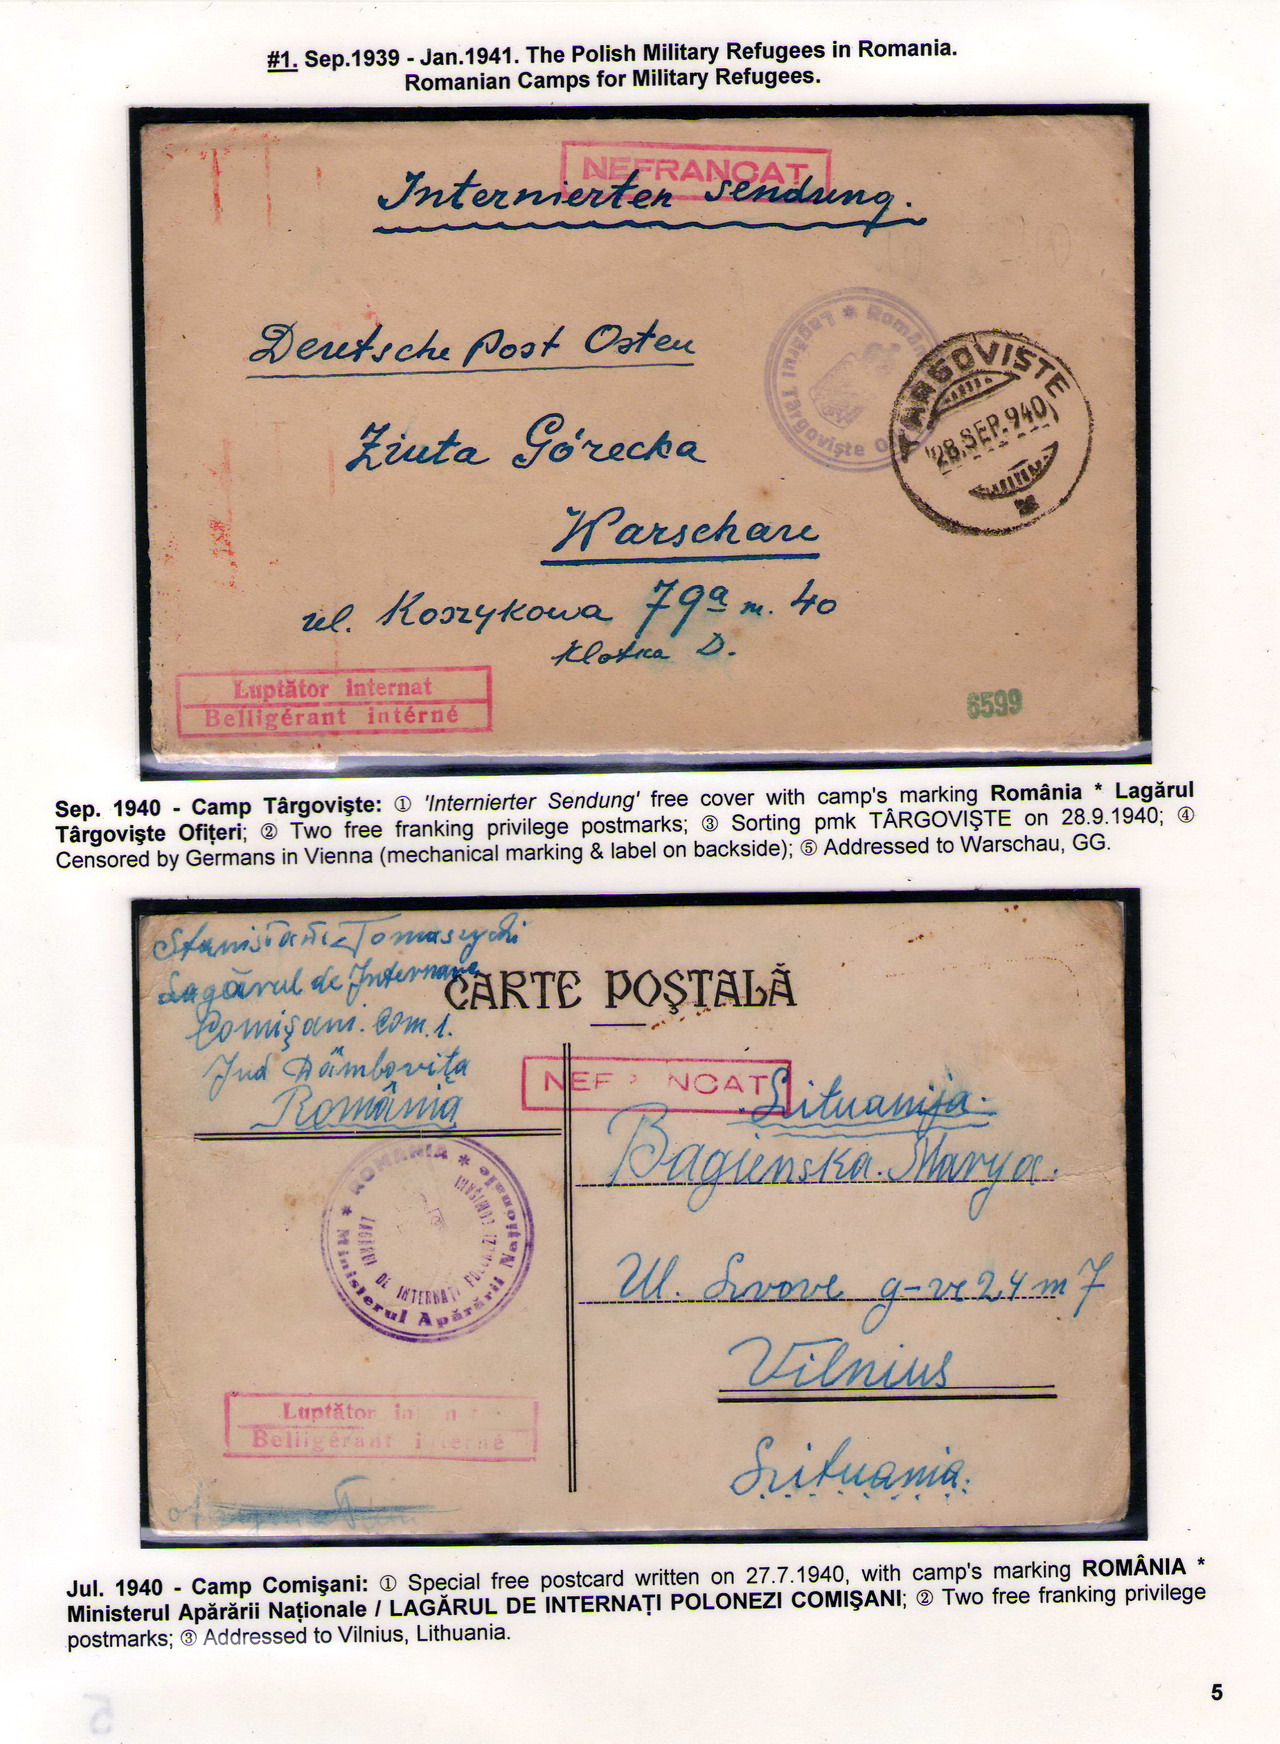 #1. Sep.1939 - Jan.1941. The Polish Military Refugees in Romania.
Romanian Camps for Military Refugees.
NEFRANCAT
Internierten sendung.
Deutsche Post Osten
România * Lagărul Târgoviște
TARGOVIȘTE
28.SEP.940
Ziuta Górecka
Warschau
ul. Koszykowa 79a m. 40
Klatka D.
Luptător internat
Belligérant intérné
6599
Sep. 1940 - Camp Târgovişte: ① 'Internierter Sendung' free cover with camp's marking România * Lagărul
Târgovişte Ofiţeri; ② Two free franking privilege postmarks; ③ Sorting pmk TÂRGOVIŞTE on 28.9.1940; ④
Censored by Germans in Vienna (mechanical marking & label on backside); ⑤ Addressed to Warschau, GG.
Lagărul de Internare
CARTE POŞTALĂ
Comişani. Com. 1.
Jud Dâmboviţa
România
NEF NCAT
Lituanija.
Bagienska. Marya.
* ROMANIA * Ministerul Apărării Naţionale
LAGĂRUL DE INTERNAŢI POLONEZI COMIŞANI
Ul. g-ve 24 m 7
Vilnius
Luptător in n
Belligérant i terné
Lrituania.
Jul. 1940 - Camp Comişani: ① Special free postcard written on 27.7.1940, with camp's marking ROMÂNIA *
Ministerul Apărării Naţionale / LAGĂRUL DE INTERNAŢI POLONEZI COMIŞANI; ② Two free franking privilege
postmarks; ③ Addressed to Vilnius, Lithuania.
5